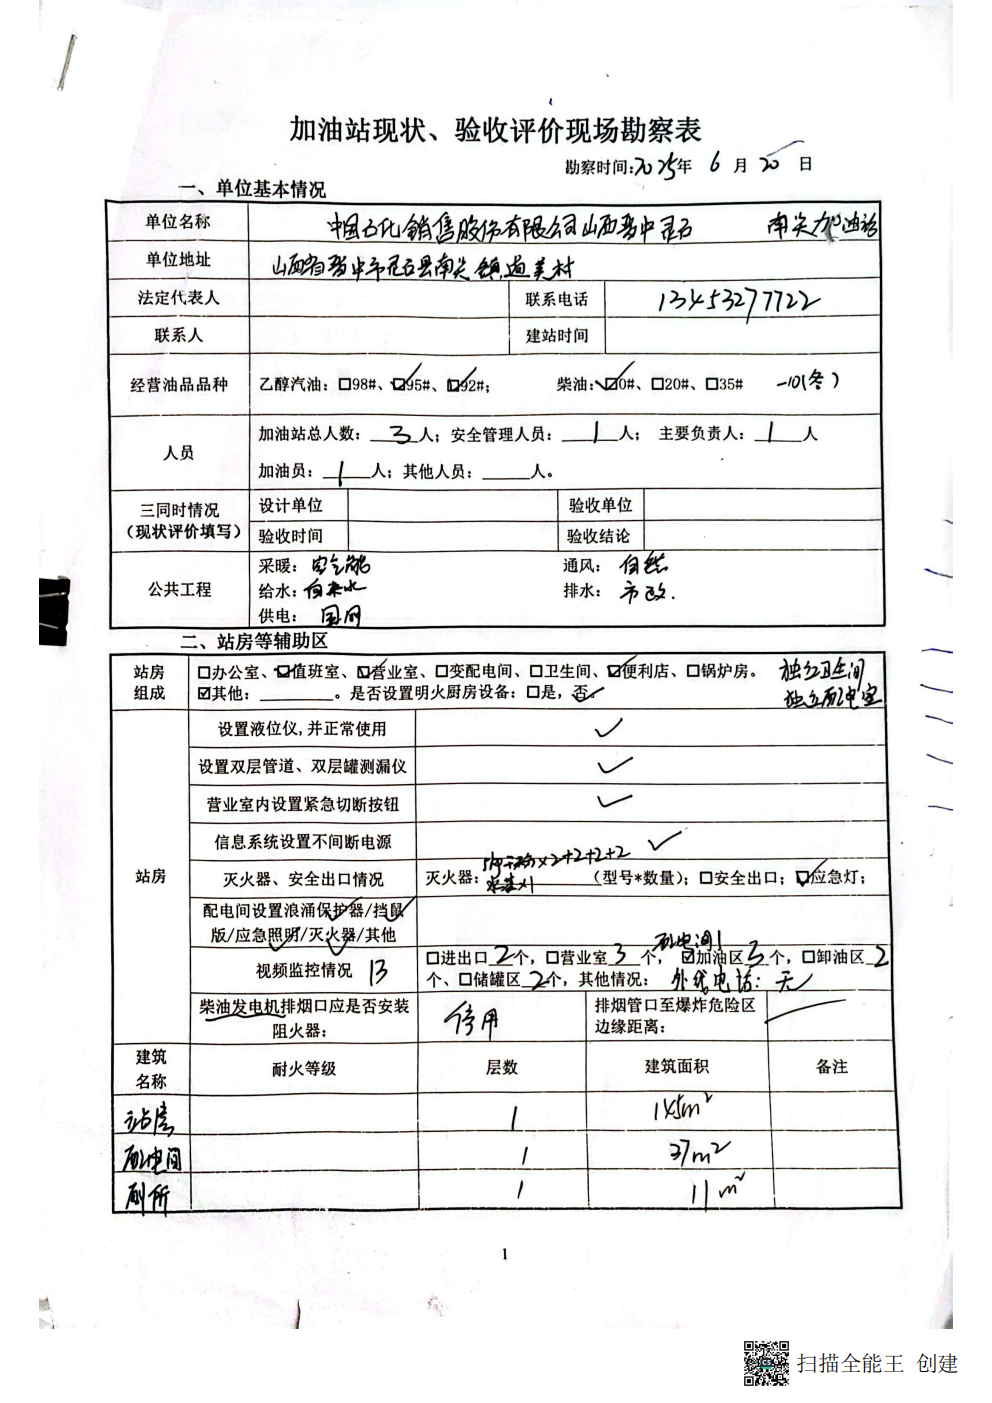 加油站现状、验收评价现场勘察表
勘察时间:2025年 6 月 20 日
一、单位基本情况
单位名称 中国石化销售股份有限公司山西晋中灵石 南关加油站
单位地址 山西省晋中市灵石县南关镇道美村
法定代表人 联系电话 13453277722
联系人 建站时间
经营油品品种 乙醇汽油：□98#、☑95#、☑92#； 柴油：☑0#、□20#、□35# -10(冬)
人员 加油站总人数：3人；安全管理人员：1人； 主要负责人：1人
加油员：1人；其他人员：____人。
三同时情况（现状评价填写） 设计单位 验收单位
验收时间 验收结论
公共工程 采暖：空气能 通风：自然
给水：自来水 排水：市政.
供电：国网
二、站房等辅助区
站房组成 □办公室、☑值班室、☑营业室、□变配电间、□卫生间、☑便利店、□锅炉房。 独立卫生间
☑其他：______。是否设置明火厨房设备：□是，否✓ 独立配电室
站房 设置液位仪,并正常使用 ✓
设置双层管道、双层罐测漏仪 ✓
营业室内设置紧急切断按钮 ✓
信息系统设置不间断电源 ✓
灭火器、安全出口情况 灭火器：5kg干粉×2+2+2+2（型号*数量)；□安全出口；☑应急灯；
配电间设置浪涌保护器/挡鼠版/应急照明/灭火器/其他
视频监控情况 13 □进出口2个，□营业室3个，配电间1 ☑加油区3个，□卸油区2
个、□储罐区2个，其他情况： 外线电话：无
柴油发电机排烟口应是否安装阻火器： 停用 排烟管口至爆炸危险区边缘距离：
建筑名称 耐火等级 层数 建筑面积 备注
站房 1 145m²
配电间 1 37m²
厕所 1 11m²
1
扫描全能王 创建